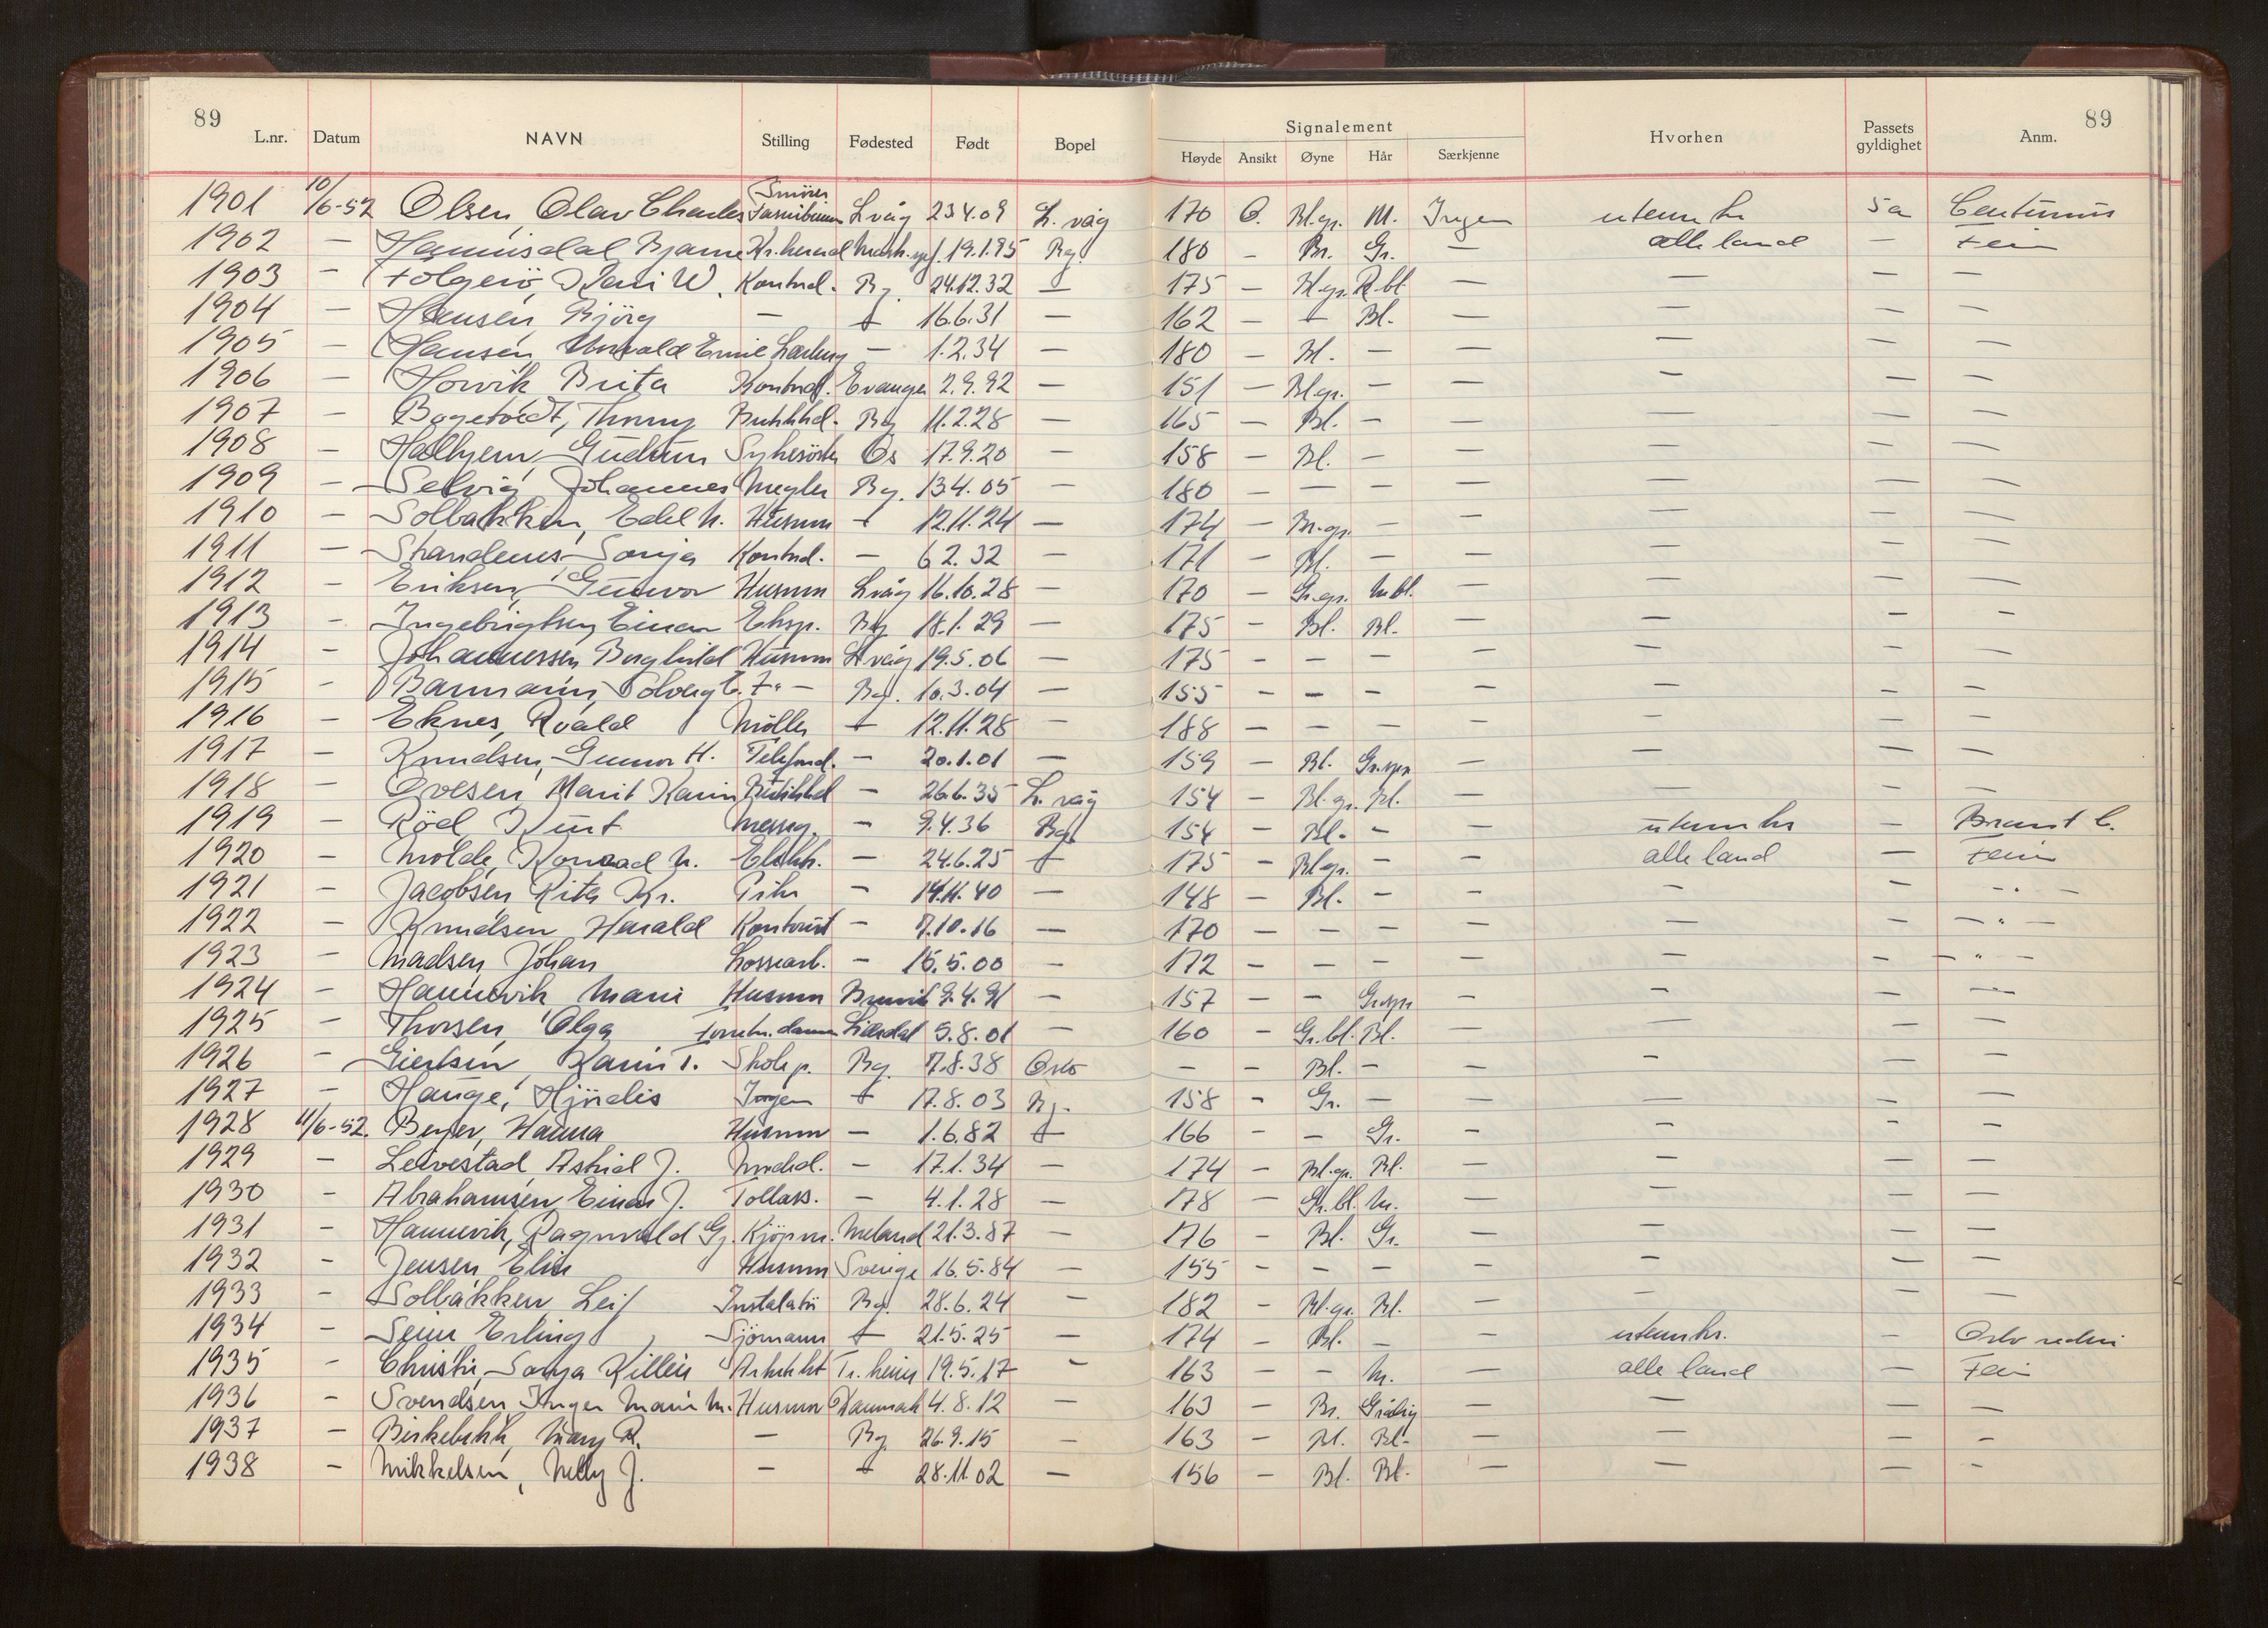 89
L.nr. Datum NAVN Stilling Fødested Født Bopel
Signalement
Høyde Ansikt Øyne Hår Særkjenne
Hvorhen Passets gyldighet Anm.
89
1901 10/6-52 Olsen, Olav Charles L våg 23.4.09 L. våg 170 O. Bl.gr. M. Ingen utenr 5 a
1902 — Bjarne 19.1.95 Bg. 180 — Br. Gr. — alle land — Ferie
1903 — Kari W. Kontord. Bg. 24.12.32 — 175 — Bl.gr. R.bl. — — — —
1904 — Hansen, Bjørg — — 16.6.31 — 162 — — Bl. — — — —
1905 — Hansen, — 1.2.34 — 180 — Bl. — — — — —
1906 — Horvik Brita Kontord. Evanger 2.9.92 — 151 — Bl.gr. — — — — —
1907 — Butikkd. Bg 11.2.28 — 165 — Bl. — — — — —
1908 — Halhjem, Gudrun Sykesöster Os 17.9.20 — 158 — Bl. — — — — —
1909 — Selvig Johannes Megler Bg. 13.4.05 — 180 — — — — — — —
1910 — Solbakken, Edel M. Husmor — 12.11.24 — 174 — Br.gr. — — — — —
1911 — Strandenes Sonja Kontord. — 6.2.32 — 171 — Bl. — — — — —
1912 — Eriksen, Gunvor Husmor L våg 16.10.28 — 170 — Gr.gr. M.bl. — — — —
1913 — Ingebrigtsen, Einar Eksp. Bg 18.1.29 — 175 — Bl. Bl. — — — —
1914 — Johannessen Borghild Husmor L våg 19.5.06 — 175 — — — — — — —
1915 — Solveig E. F. — Bg. 10.3.04 — 155 — — — — — — —
1916 — Eknes, Roald Møller — 12.11.28 — 188 — — — — — — —
1917 — Knudsen, Gunvor H. Telefond. — 20.1.01 — 159 — Bl. — — — —
1918 — Ovesen, Marit Karin Butikkd — 26.6.35 L. våg 154 — Bl. gr. Bl. — — — —
1919 — Röd, Kurt Messeg. — 9.4.36 Bg. 154 — Bl. — — utenr — Brant C.
1920 — Molde, Konrad M. Elektr. — 24.6.25 — 175 — Bl.gr. — — alle land — Ferie
1921 — Jacobsen Rita Kr. Pike — 14.11.40 — 148 — Bl. — — — — - " -
1922 — Knudsen Harald Kontorist — 7.10.16 — 170 — — — — — — - " -
1923 — Madsen, Johan Lossearb. — 15.5.00 — 172 — — — — — — - " -
1924 — Hannevik Marie Husmor 9.4.91 — 157 — — — — — —
1925 — Thorsen, Olga 5.8.01 — 160 — Gr.bl. Bl. — — — —
1926 — Giertsen Karin T. Skolep. Bg. 7.8.38 Oslo — — Bl. — — — — —
1927 — Hauge, Hjördis Ingen — 17.8.03 Bg. 158 — Gr. — — — — —
1928 11/6-52. Beyer, Hanna Husmor — 1.6.82 — 166 — — Gr. — — — —
1929 — Leivestad, Astrid J. — 17.1.34 — 174 — Bl.gr. Bl. — — — —
1930 — Abrahamsen, Einar J. Tollass. — 4.1.28 — 178 — Gr.bl. M. — — — —
1931 — Hannevik, Ragnvald G. Kjöpm. Meland 21.3.87 — 176 — Bl. Gr. — — — —
1932 — Jensen, Husmor Sverige 16.5.84 — 155 — — — — — — —
1933 — Solbakken, Leif Bg. 28.6.24 — 182 — Bl.gr. Bl. — — — —
1934 — Seim Erling Sjömann — 21.5.25 — 174 — Bl. — — utenr. — Oslo rederi
1935 — Sonja Arkitekt Tr.heim 19.5.17 — 163 — — M. — alle land — Ferie
1936 — Svendsen Inger Marie M. Husmor Danmark 4.8.12 — 163 — Br. — — — —
1937 — Mary R. — Bg. 26.9.15 — 163 — Bl. Bl. — — — —
1938 — Mikkelsen, Nelly J. — — 28.11.02 — 156 — Bl. Bl. — — — —